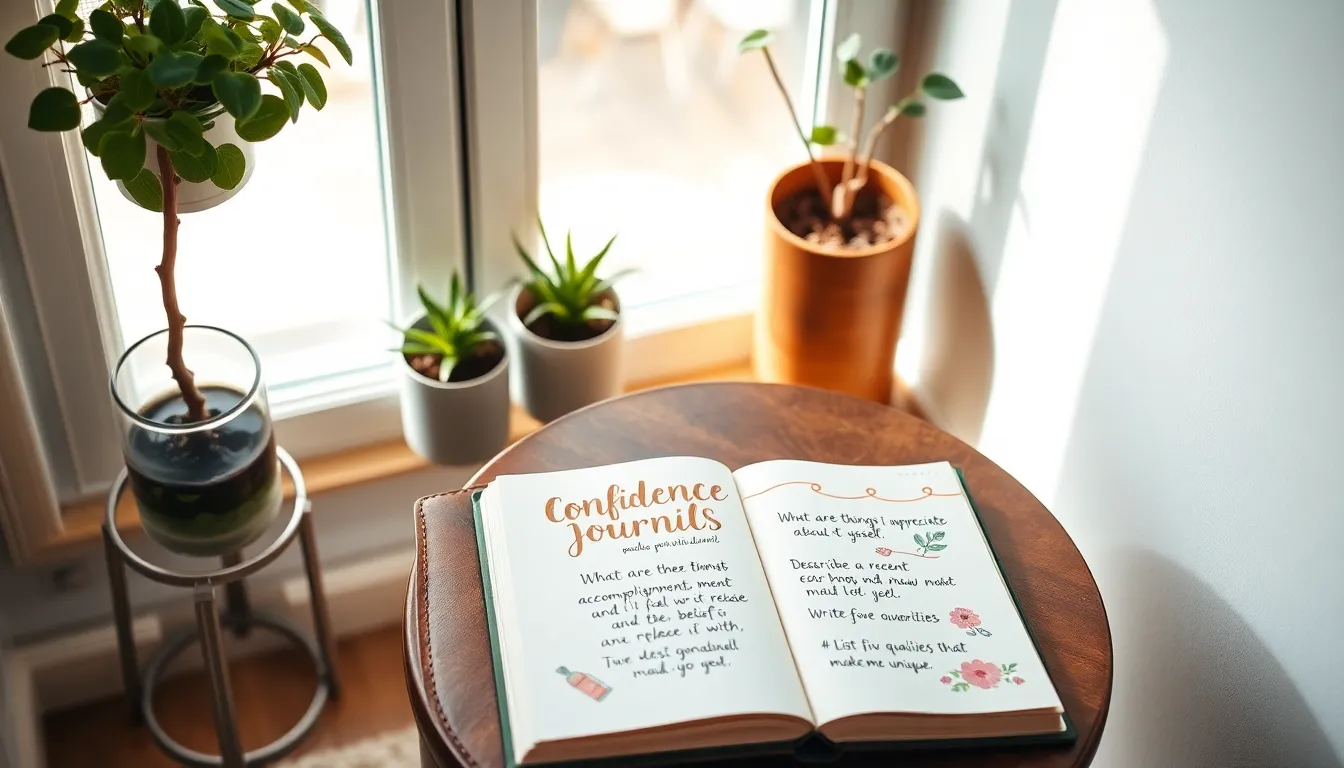 Confidence
Journils
What are thee timst
accomplignment, ment
and i'll feel we it rebise
and the, belief is
ane replece it with,
Twe dest gonalnall
mads.yo yeel.
What are things I appreciate
about t yssel.
Describe a recent
ear bnoy, wid maw mobt
maul lot yeel.
Write fove ouvorities
# List fiv qualities that
make me unique.